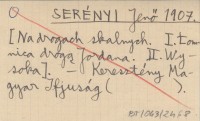 SERÉNYI Jenő 1907.
[Na drogach skalnych. I. Łom-
nica drogą Jordana. II. Wy-
soka]. Keresztény Ma-
gyar Ifjuság ( ).